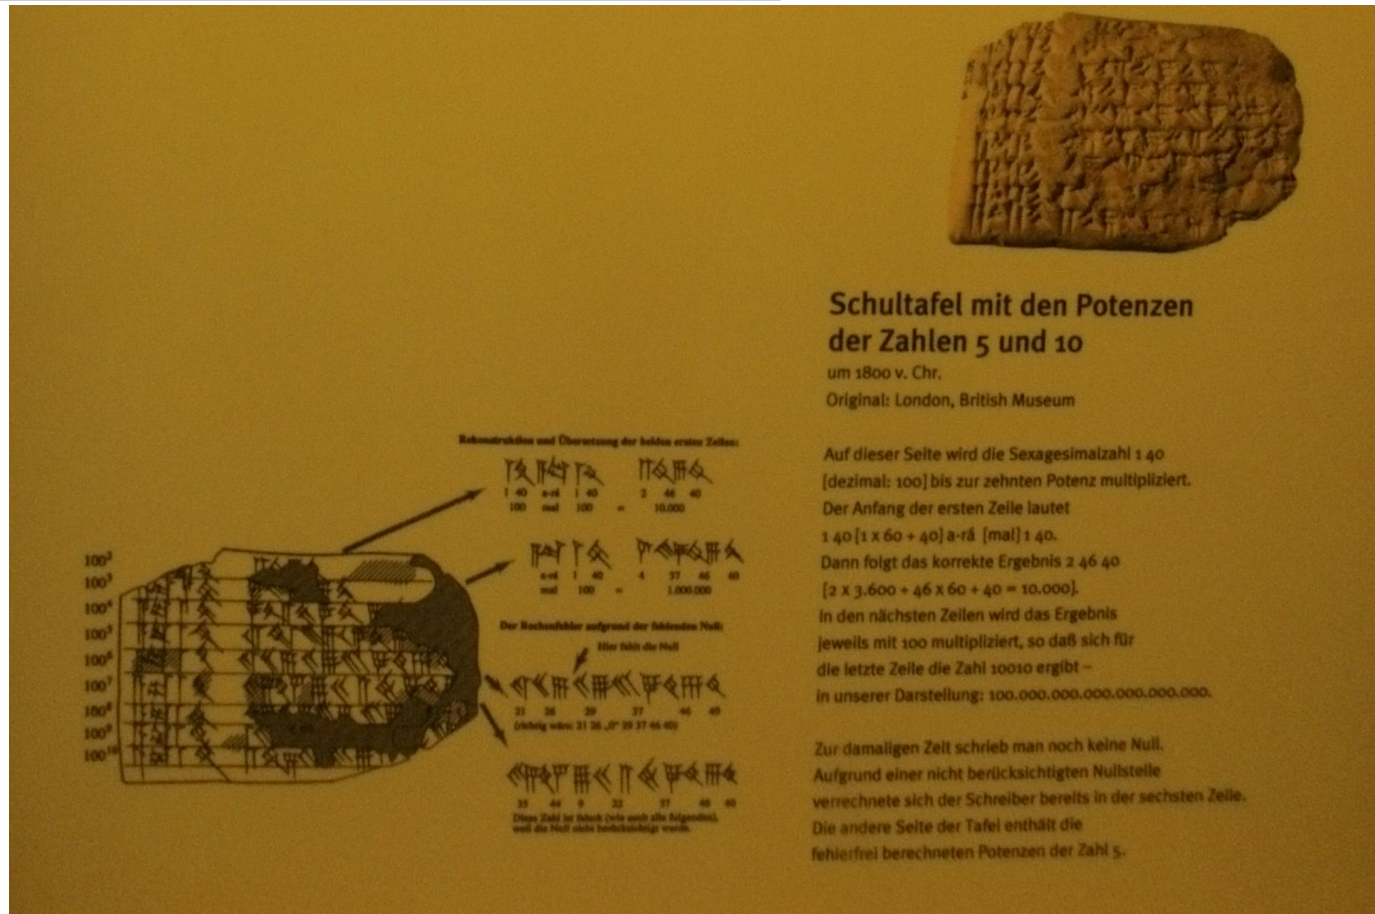 Schultafel mit den Potenzen
der Zahlen 5 und 10
um 1800 v. Chr.
Original: London, British Museum
Auf dieser Seite wird die Sexagesimalzahl 1 40
[dezimal: 100] bis zur zehnten Potenz multipliziert.
Der Anfang der ersten Zeile lautet
1 40 [1 x 60 + 40] a-rá [mal] 1 40.
Dann folgt das korrekte Ergebnis 2 46 40
[2 x 3.600 + 46 x 60 + 40 = 10.000].
In den nächsten Zeilen wird das Ergebnis
jeweils mit 100 multipliziert, so daß sich für
die letzte Zeile die Zahl 10010 ergibt –
in unserer Darstellung: 100.000.000.000.000.000.000.
Zur damaligen Zeit schrieb man noch keine Null.
Aufgrund einer nicht berücksichtigten Nullstelle
verrechnete sich der Schreiber bereits in der sechsten Zeile.
Die andere Seite der Tafel enthält die
fehlerfrei berechneten Potenzen der Zahl 5.
Rekonstruktion und Übersetzung der beiden ersten Zeilen:
1 40 a-rá 1 40 2 46 40
100 mal 100 = 10.000
a-rá 1 40 4 37 46 40
mal 100 = 1.000.000
Der Rechenfehler aufgrund der fehlenden Null:
Hier fehlt die Null
21 26 29 37 46 40
(richtig wäre: 21 26 „0“ 29 37 46 40)
35 44 9 22 57 46 40
Diese Zahl ist falsch (wie auch alle folgenden),
weil die Null nicht berücksichtigt wurde.
100²
100³
100⁴
100⁵
100⁶
100⁷
100⁸
100⁹
100¹⁰